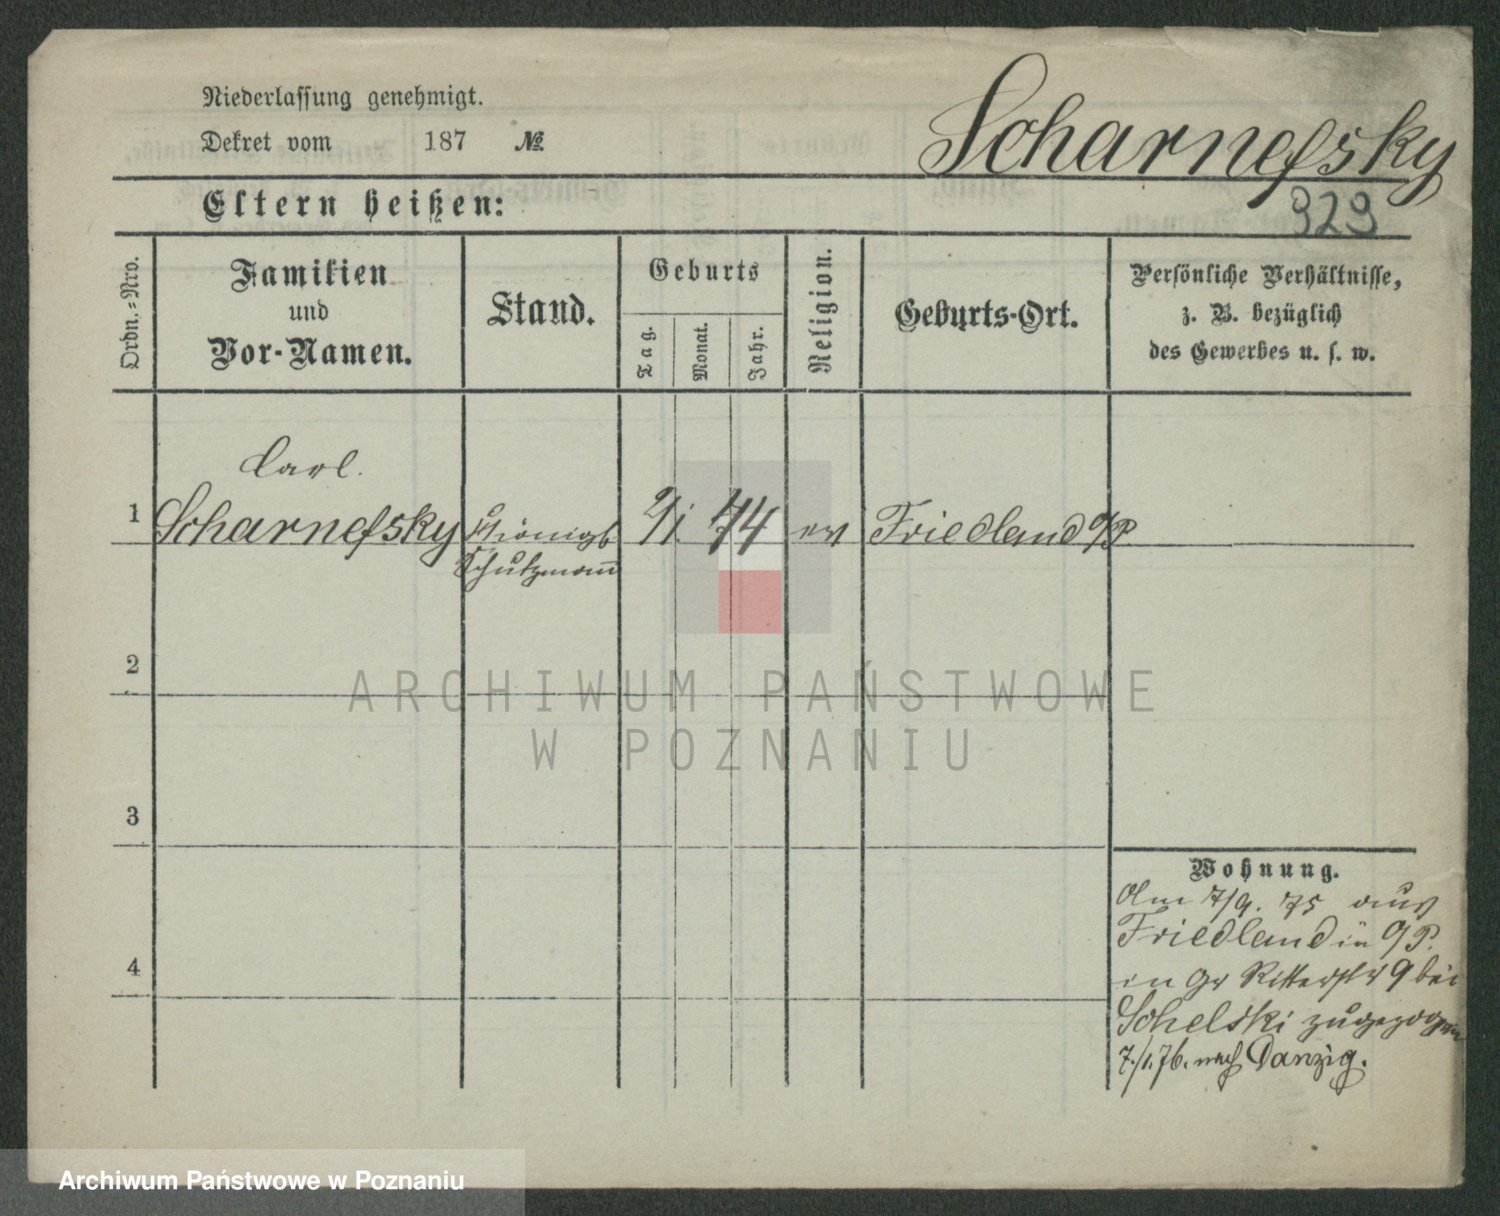 Niederlassung genehmigt.
Dekret vom 187 №
Scharnefsky
Eltern heißen:
323
Ordn.-Nro.
Familien
und
Vor-Namen.
Stand.
Geburts
Tag.
Monat.
Jahr.
Religion.
Geburts-Ort.
Persönliche Verhältnisse,
z. B. bezüglich
des Gewerbes u. s. w.
Carl.
1 Scharnefsky 2/1 44 ev Friedland O/P
Schutzmann
2
3
4
Wohnung.
Am 7/9. 75 aus
Friedland in O/P.
in Gr Ritterstr 9 bei
Schelski zugezogen
7./1.76. nach Danzig.
ARCHIWUM PAŃSTWOWE
W POZNANIU
Archiwum Państwowe w Poznaniu